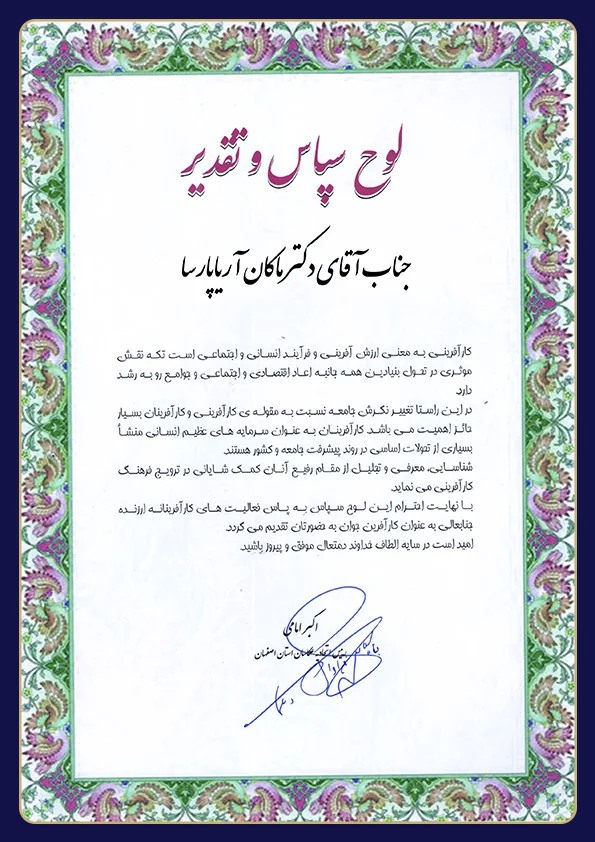 لوح سپاس و تقدیر
جناب آقای دکتر ماکان آریا پارسا
کارآفرینی به معنی ارزش آفرینی و فرآیند انسانی و اجتماعی است تکه نقش
موثری در تحول بنیادین همه جانبه اعاد اقتصادی و اجتماعی و جوامع رو به رشد
دارد.
در این راستا تغییر نگرش جامعه نسبت به مقوله ی کارآفرینی و کارآفرینان بسیار
حائز اهمیت می باشد. کارآفرینان به عنوان سرمایه های عظیم انسانی منشأ
بسیاری از تحولات اساسی در روند پیشرفت جامعه و کشور هستند.
شناسایی، معرفی و تجلیل از مقام رفیع آنان کمک شایانی در ترویج فرهنگ
کارآفرینی می نماید.
با نهایت احترام این لوح سپاس به پاس فعالیت های کارآفرینانه ارزنده
جنابعالی به عنوان کارآفرین جوان به حضورتان تقدیم می گردد.
امید است در سایه الطاف خداوند دمتعال موفق و پیروز باشید.
اکبر امامی
استان اصفهان